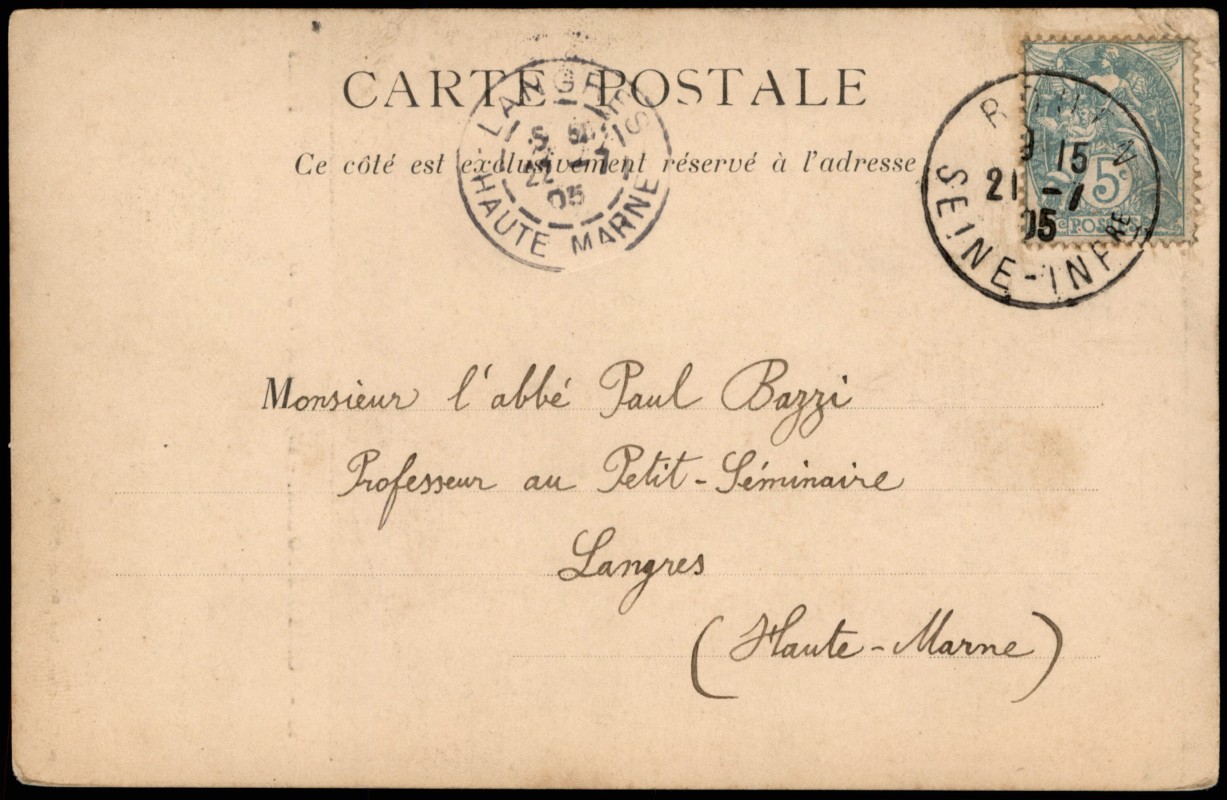 CARTE POSTALE
Ce côté est exclusivement réservé à l'adresse
LANGRES
05
HAUTE MARNE
ROUEN
9 15
21 -1
05
SEINE-INFRE
5c
POSTES
Monsieur l'abbé Paul Bazzi
Professeur au Petit-Séminaire
Langres
(Haute-Marne)